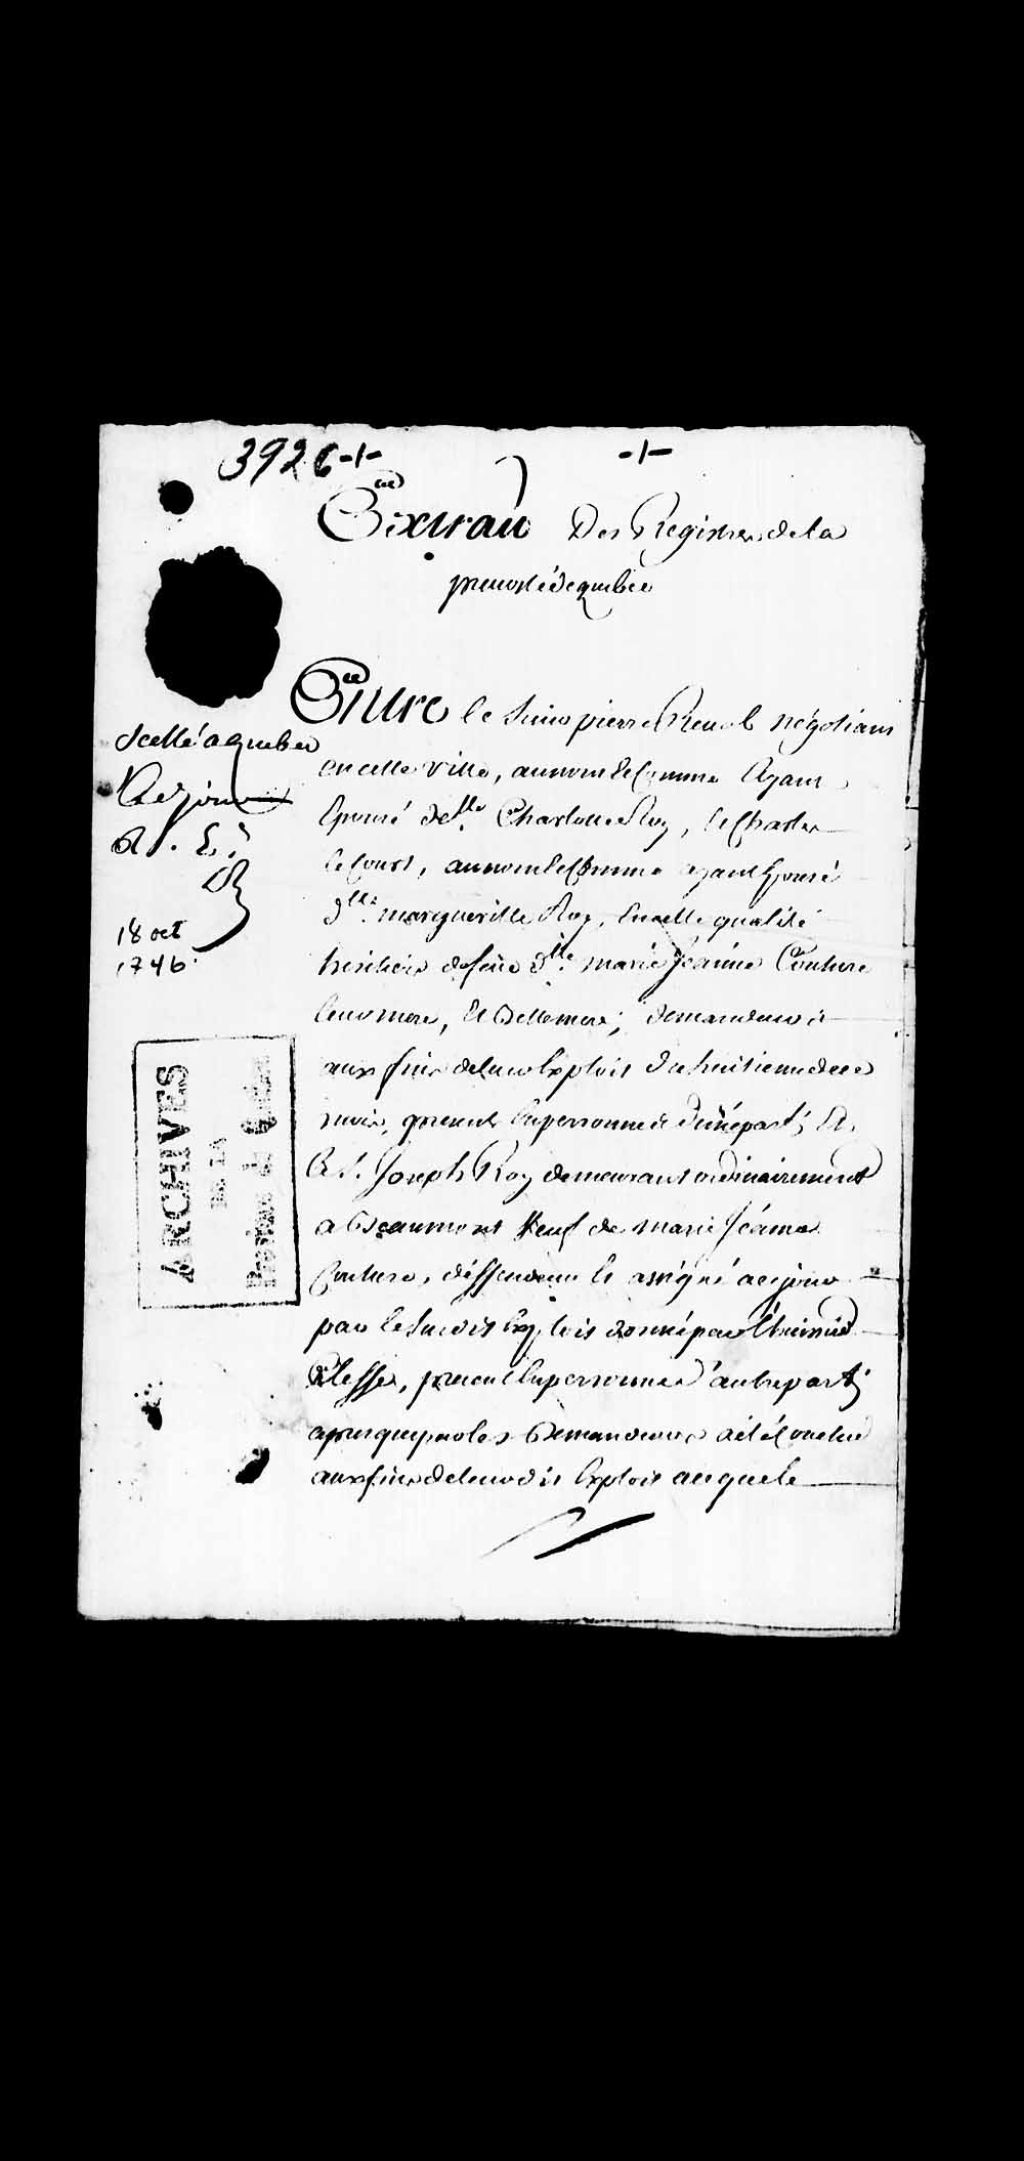 3926-1-
-1-
Extrait Des Registres de la
prevosté de quebec
Entre le Sieur pierre Revol négotiant
en cette ville, au nom & comme Ayant
Epousé delle. Charlotte Roy, & Charles
Lecours, au nom & comme ayant Epousé
dlle. margueritte Roy, En cette qualité
heritiers defeue dlle. marie jeanne Couture
leur mere, Et Bellemere; demandeurs
aux fins deleur Exploit du huitieme de ce
mois, present En personnes d'une part; Et
Le S. Joseph Roy demeurant ordinairement
a Beaumont Veuf de marie Jeanne
Couture, déffendeur & assigné a ce jour
par le Susdit Exploit donné par l'huissier
Clesse, present En personne d'autre part;
apres que par les Demandeurs a été Conclud
aux fins deleur dit Exploit auquel
Scellé a quebec
Led. jour
R. S.
18 oct
1746
ARCHIVES
DE LA
Province de Québec